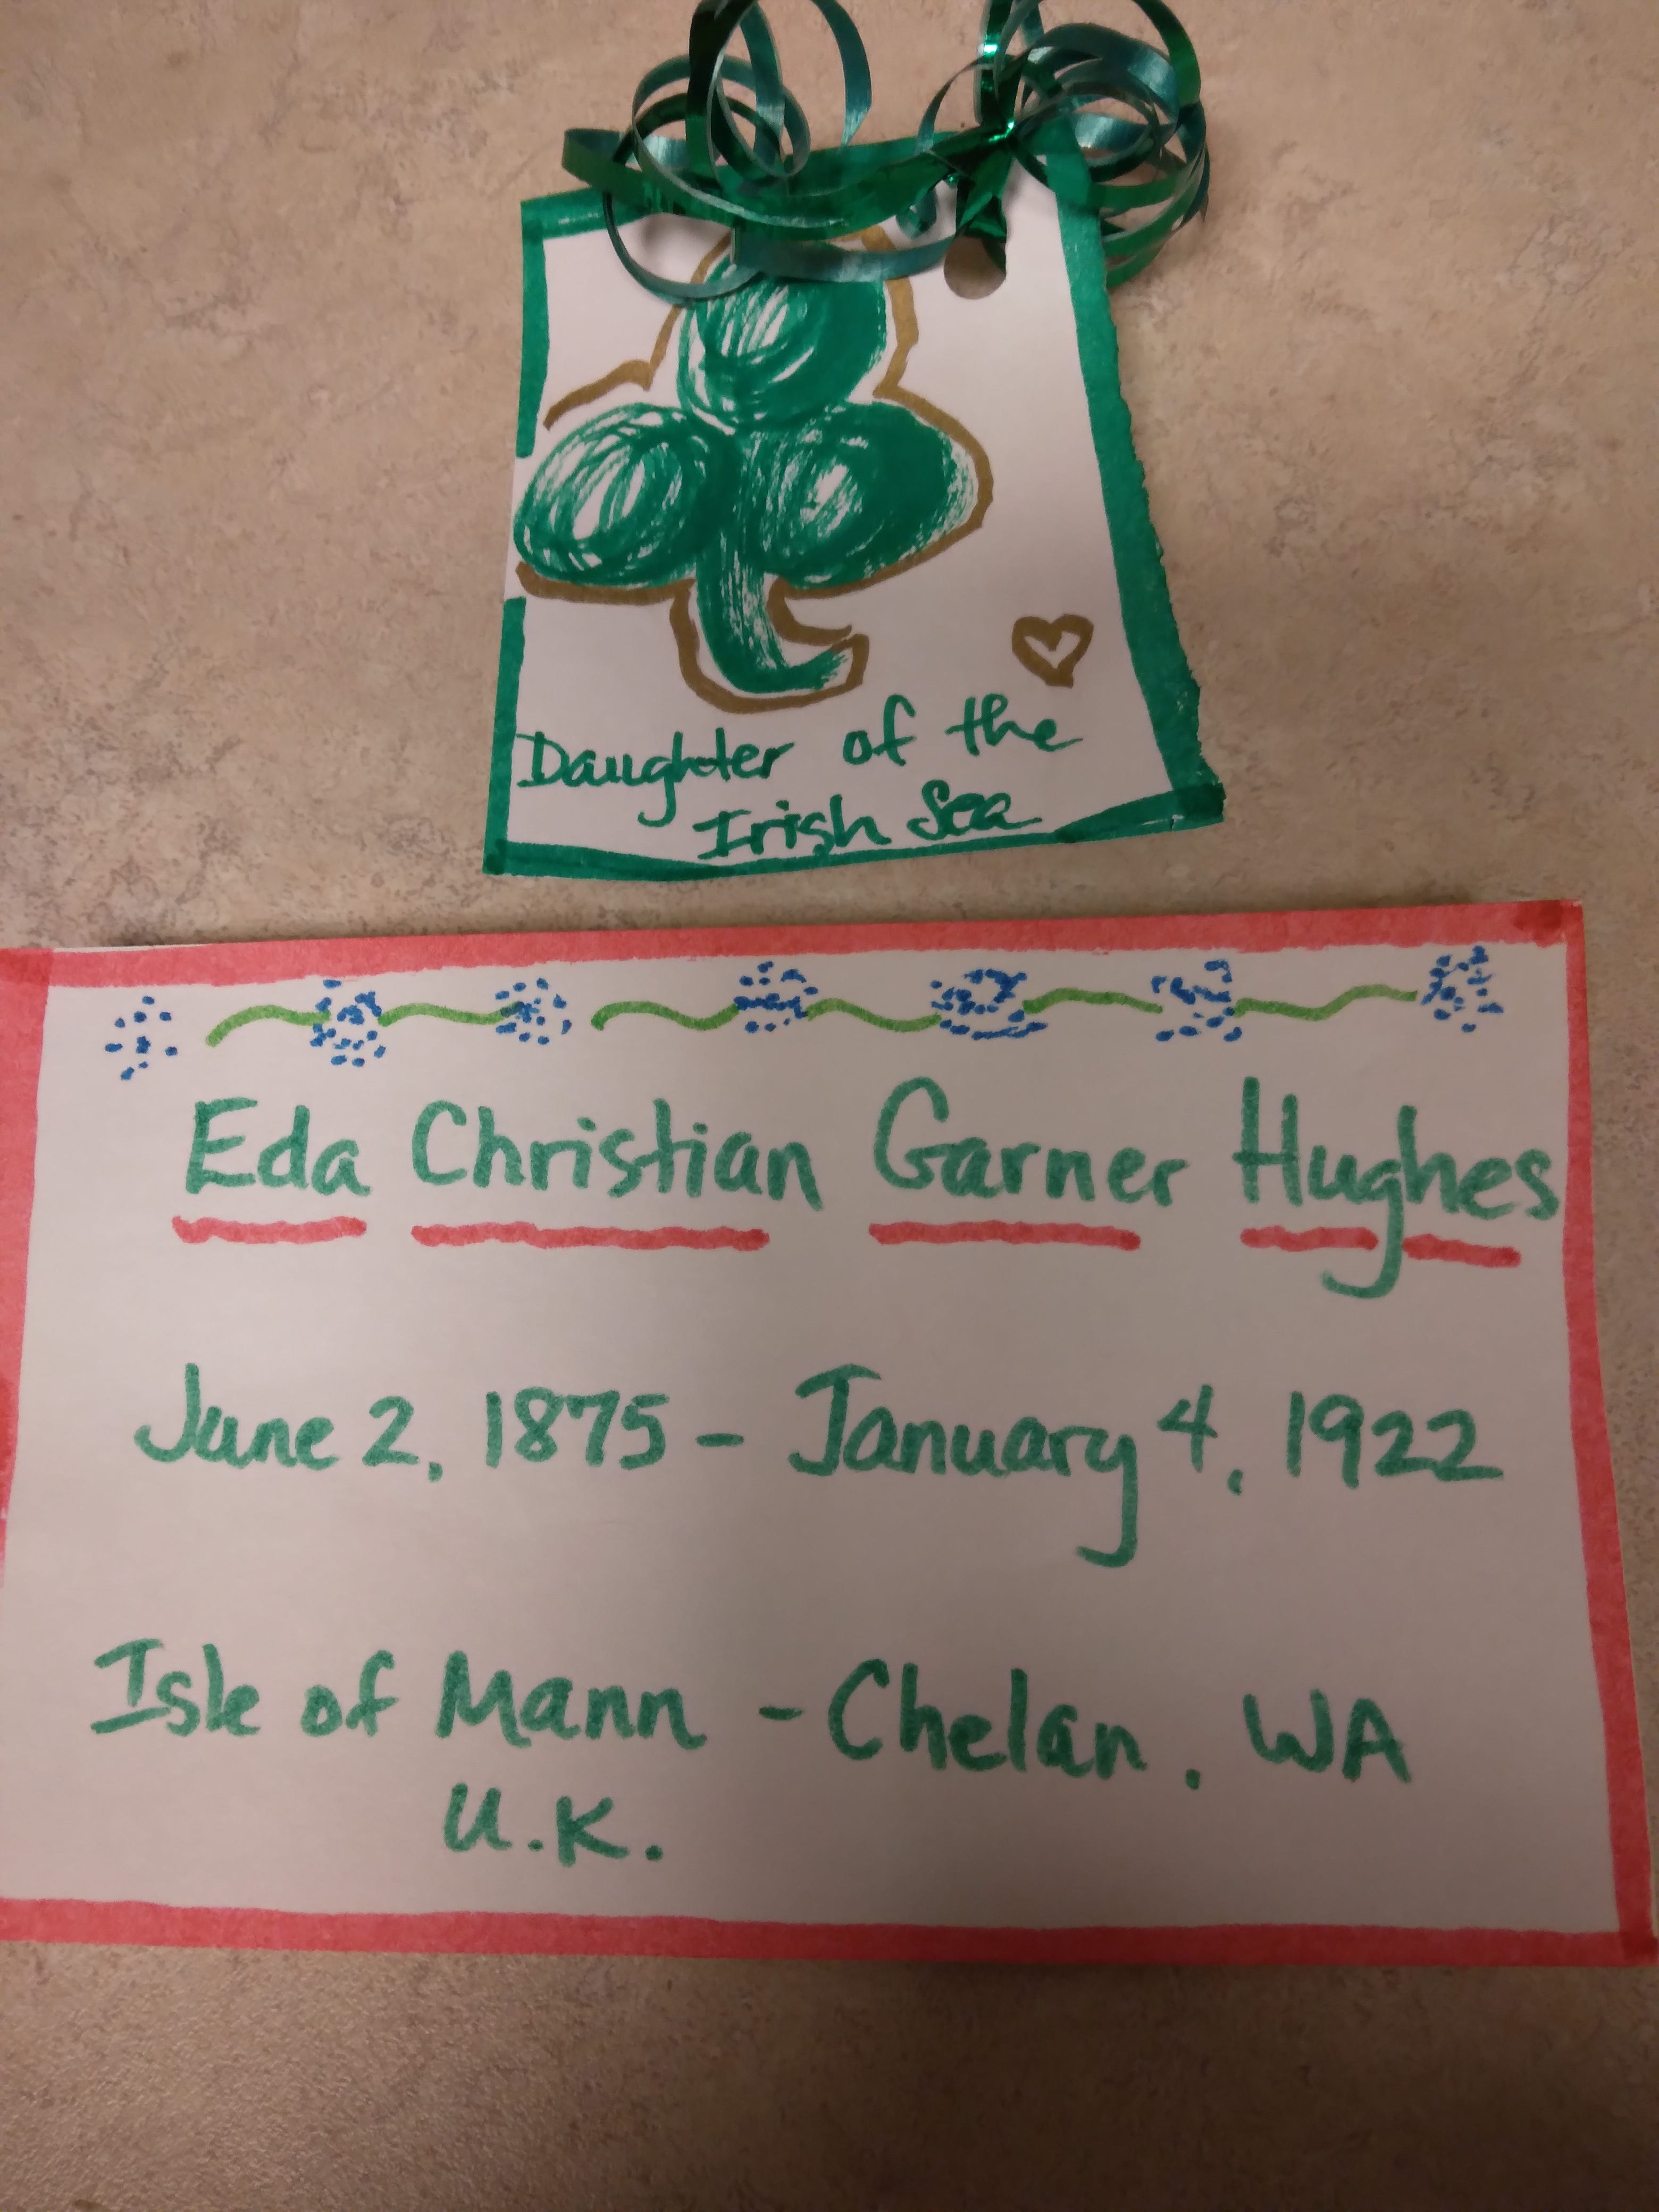 Daughter of the
Irish Sea
Eda Christian Garner Hughes
June 2, 1875 - January 4, 1922
Isle of Mann - Chelan, WA
U.K.